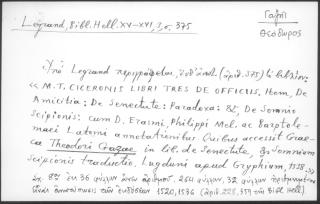 Legrand, Bibl. Hell. XV–XVI, 3, σ. 375
Γαζῆς
Θεόδωρος
Ὑπὸ Legrand περιγράφεται, (ἀριθ. 375) τὸ βιβλίον:
« M. T. CICERONIS LIBRI TRES DE OFFICIIS, Item, De
Amicitia: De Senectute: Paradoxa: &, De Somnio
Scipionis: cum D. Erasmi, Philippi Mel. ac Bartpolo-
maei Latomi annotationibus. Quibus accessit Graeca
Theodori Gazae, in lib. de Senectute, & Somnium
Scipionis traductio, Lugduni apud Gryphium, 1538.»
εἰς 8ον ἐκ 36 φύλλων ἄνευ ἀριθμοῦ, 264 φύλλων, 32 φύλλων
ἀνατυπώσεις τῶν ἐκδόσεων 1520, 1536 (ἀριθ. 228, 359 τῆς Bibl. Hell.)